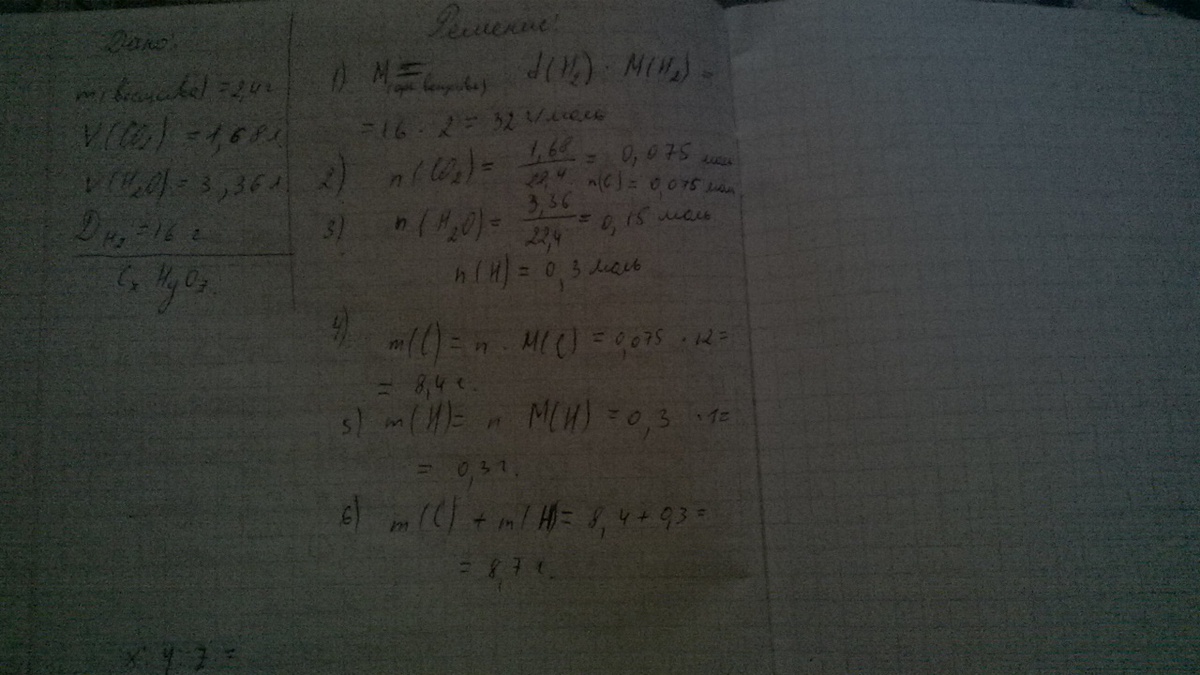 Дано:
m(вещества) = 2,4 г
V(CO₂) = 1,68 л
V(H₂O) = 3,36 л
D H₂ = 16 г
CₓHyOz
x : y : z =
Решение:
1) M = d(H₂) · M(H₂) =
= 16 · 2 = 32 г/моль
2) n(CO₂) = 1,68 / 22,4 = 0,075 моль
n(C) = 0,075 моль
3) n(H₂O) = 3,36 / 22,4 = 0,15 моль
n(H) = 0,3 моль
4) m(C) = n · M(C) = 0,075 · 12 =
= 8,4 г.
5) m(H) = n M(H) = 0,3 · 1 =
= 0,3 г.
6) m(C) + m(H) = 8,4 + 0,3 =
= 8,7 г.